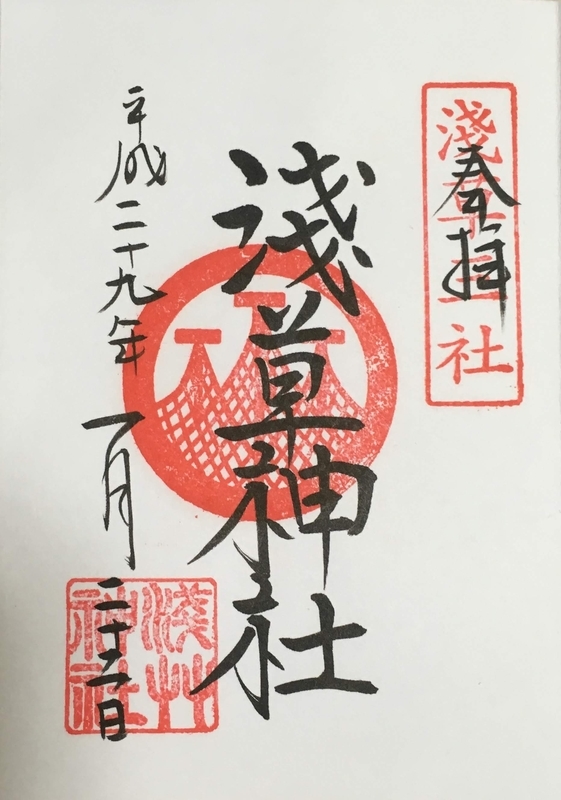 淺草三社
奉拝
淺草神社
平成二十九年一月二十二日
淺艸神社